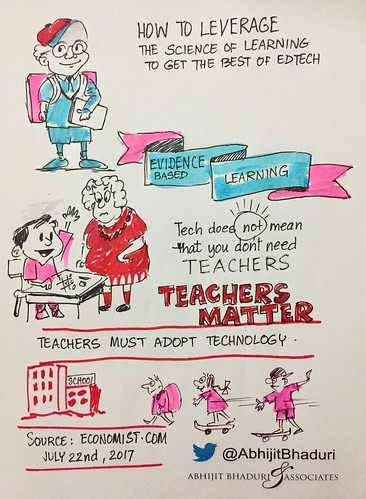 HOW TO LEVERAGE
THE SCIENCE OF LEARNING
TO GET THE BEST OF EDTECH
EVIDENCE
BASED
LEARNING
Tech does not mean
that you don't need
TEACHERS
TEACHERS
MATTER
TEACHERS MUST ADOPT TECHNOLOGY.
SCHOOL
SOURCE: ECONOMIST.COM
JULY 22nd, 2017
@AbhijitBhaduri
ABHIJIT BHADURI & ASSOCIATES